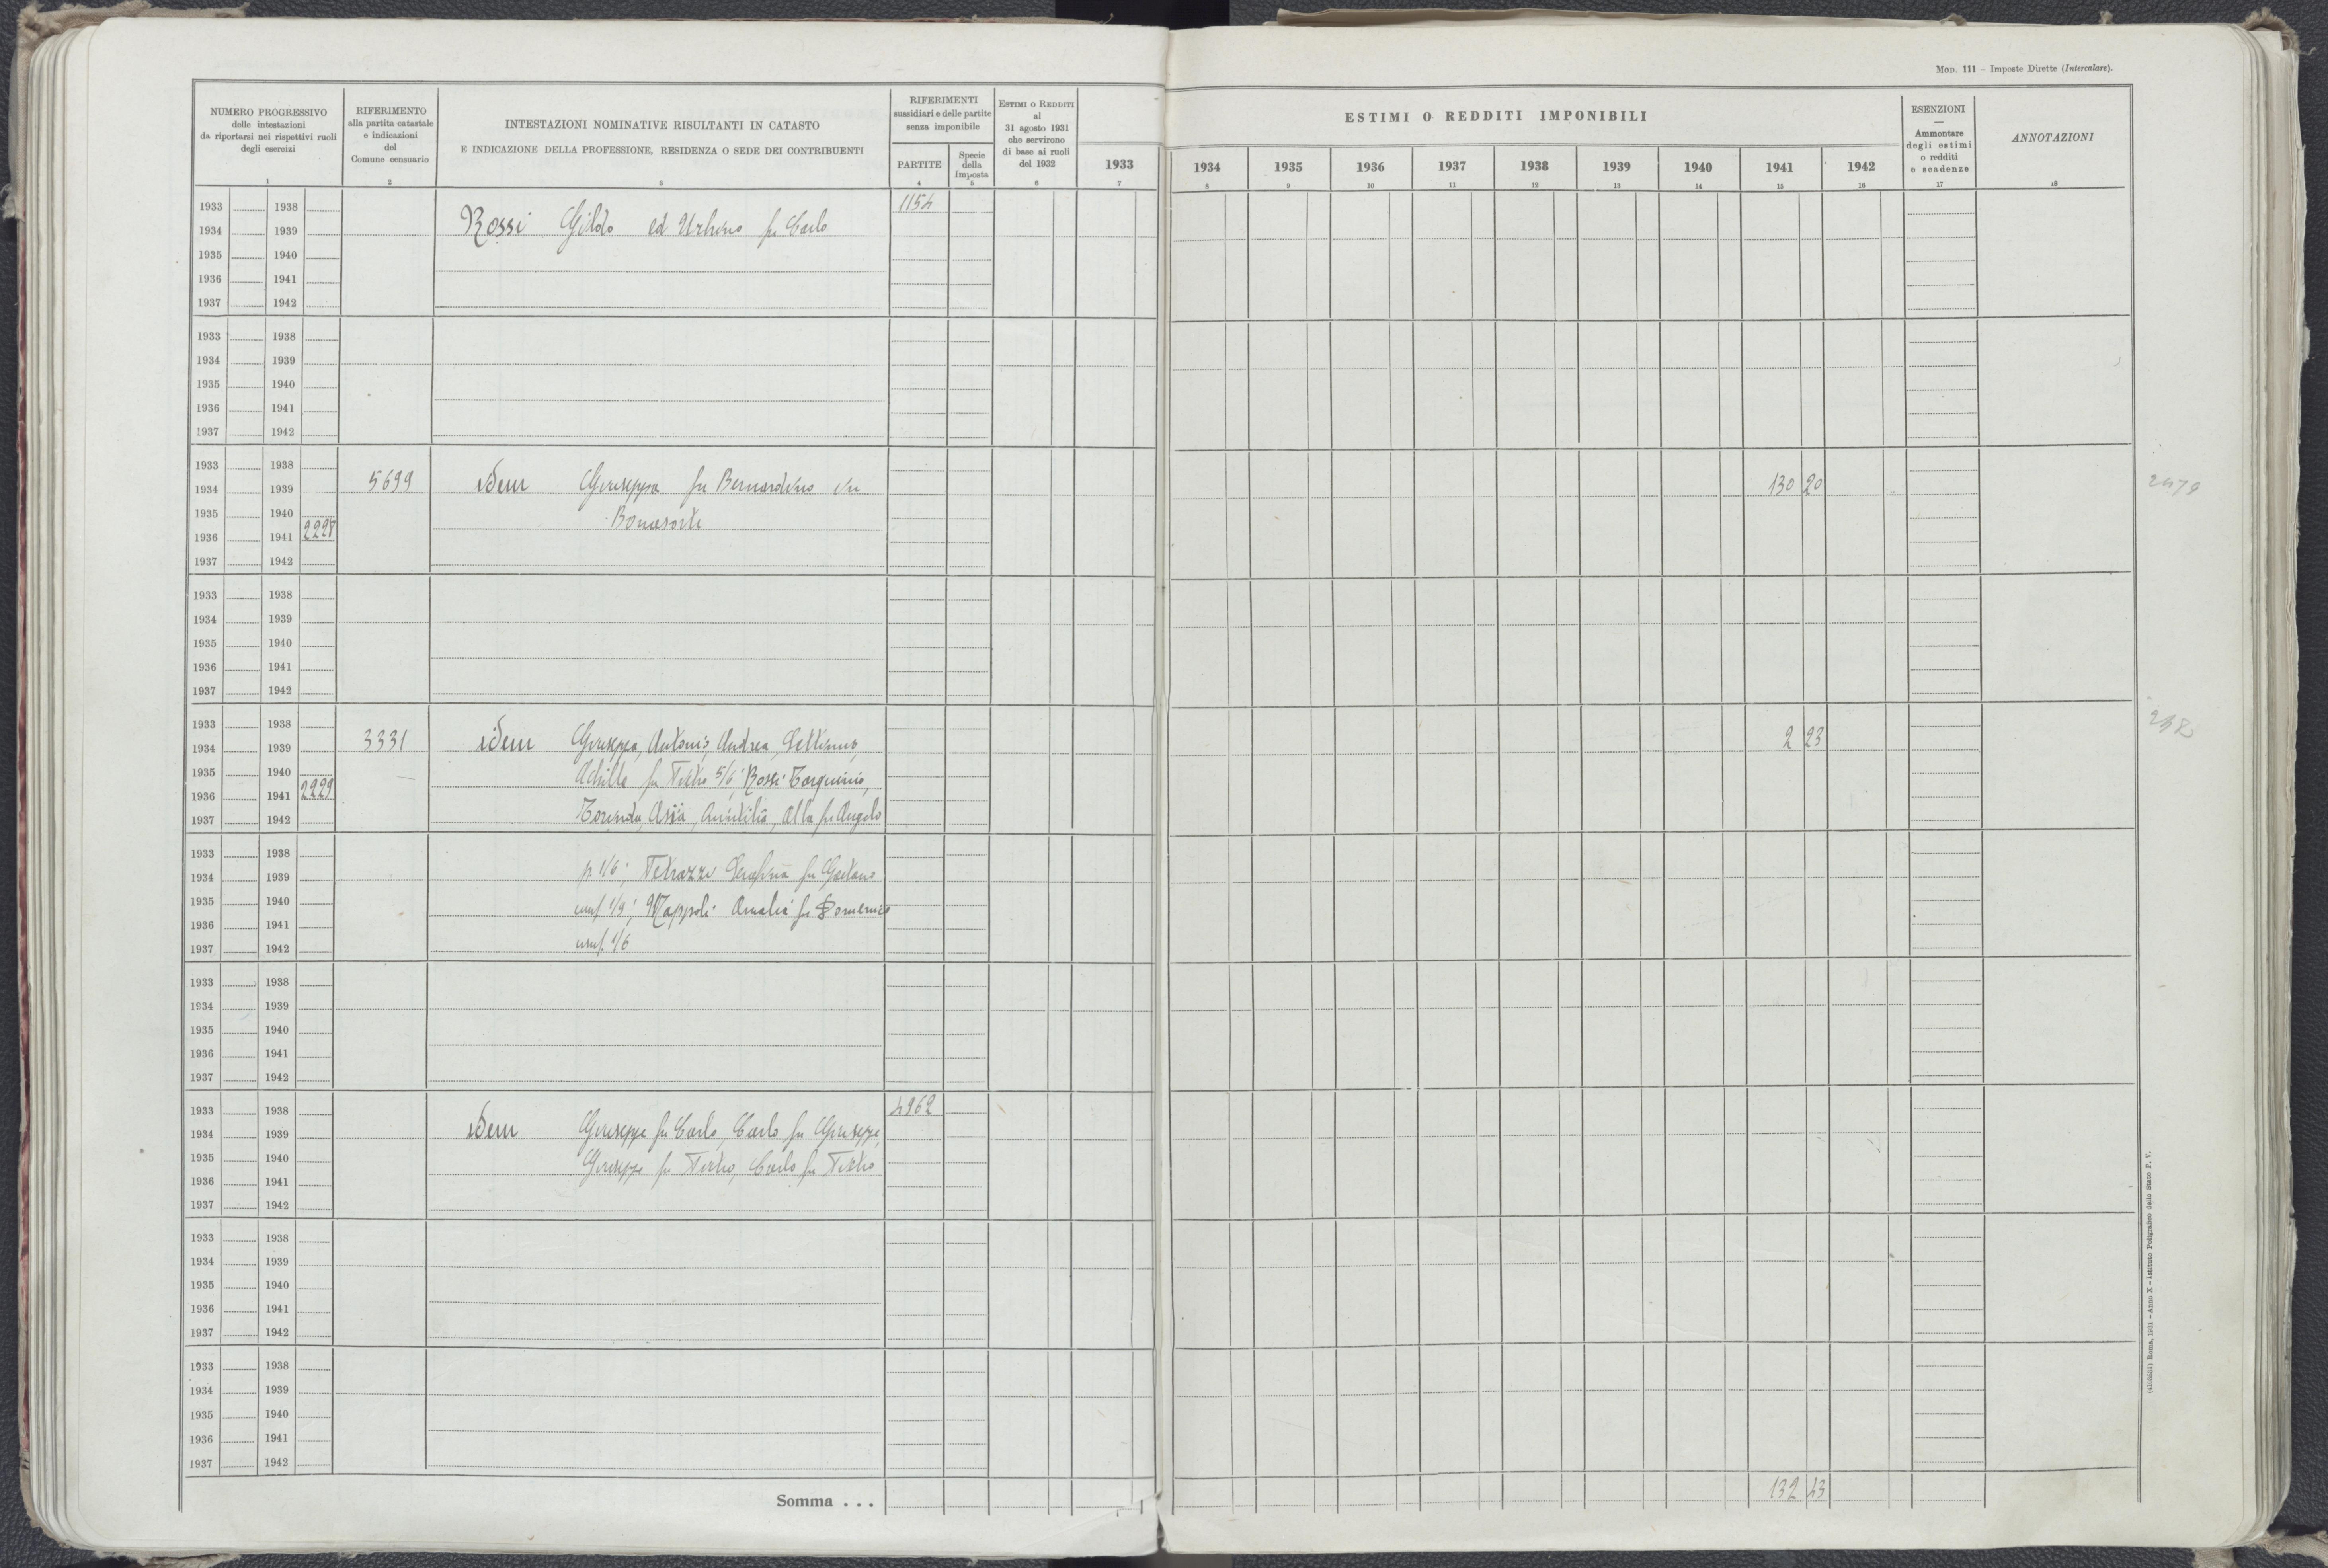 Mod. 111 – Imposte Dirette (Intercalare).
NUMERO PROGRESSIVO
delle intestazioni
da riportarsi nei rispettivi ruoli
degli esercizi
1
RIFERIMENTO
alla partita catastale
e indicazioni
del
Comune censuario
2
INTESTAZIONI NOMINATIVE RISULTANTI IN CATASTO
E INDICAZIONE DELLA PROFESSIONE, RESIDENZA O SEDE DEI CONTRIBUENTI
3
RIFERIMENTI
sussidiari e delle partite
senza imponibile
PARTITE
4
Specie
della
imposta
5
Estimi o Redditi
al
31 agosto 1931
che servirono
di base ai ruoli
del 1932
6
ESTIMI O REDDITI IMPONIBILI
1933 1934 1935 1936 1937 1938 1939 1940 1941 1942
7 8 9 10 11 12 13 14 15 16
ESENZIONI
—
Ammontare
degli estimi
o redditi
e scadenze
17
ANNOTAZIONI
18
1933 1938 1154
Rossi Gildo ed Urbino fu Carlo
1934 1939
1935 1940
1936 1941
1937 1942
1933 1938
1934 1939
1935 1940
1936 1941
1937 1942
1933 1938
1934 1939 5699 idem Giuseppa fu Bernardino in 130 20
1935 1940 Bonasorte
1936 1941 2228
1937 1942
1933 1938
1934 1939
1935 1940
1936 1941
1937 1942
1933 1938
1934 1939 3331 idem Giuseppa, Antonio, Andrea, Settimio, 2 23
1935 1940 Achille fu Pietro 5/6; Rossi Tarquinio,
1936 1941 2229
1937 1942 Asia, fu Angelo
1933 1938
1934 1939 p. 1/6; Petrazzi Serafina fu Gaetano
1935 1940 usuf. 1/9; Mappoli Amalia fu Domenico
1936 1941
1937 1942 usuf. 1/6
1933 1938
1934 1939
1935 1940
1936 1941
1937 1942
1933 1938 4962
1934 1939 idem Giuseppe fu Carlo, Carlo fu Giuseppe,
1935 1940 Giuseppe fu Pietro, Carlo fu Pietro
1936 1941
1937 1942
1933 1938
1934 1939
1935 1940
1936 1941
1937 1942
1933 1938
1934 1939
1935 1940
1936 1941
1937 1942
Somma . . . 132 43
Roma, 1931 – Anno X – Istituto Poligrafico dello Stato P. V.